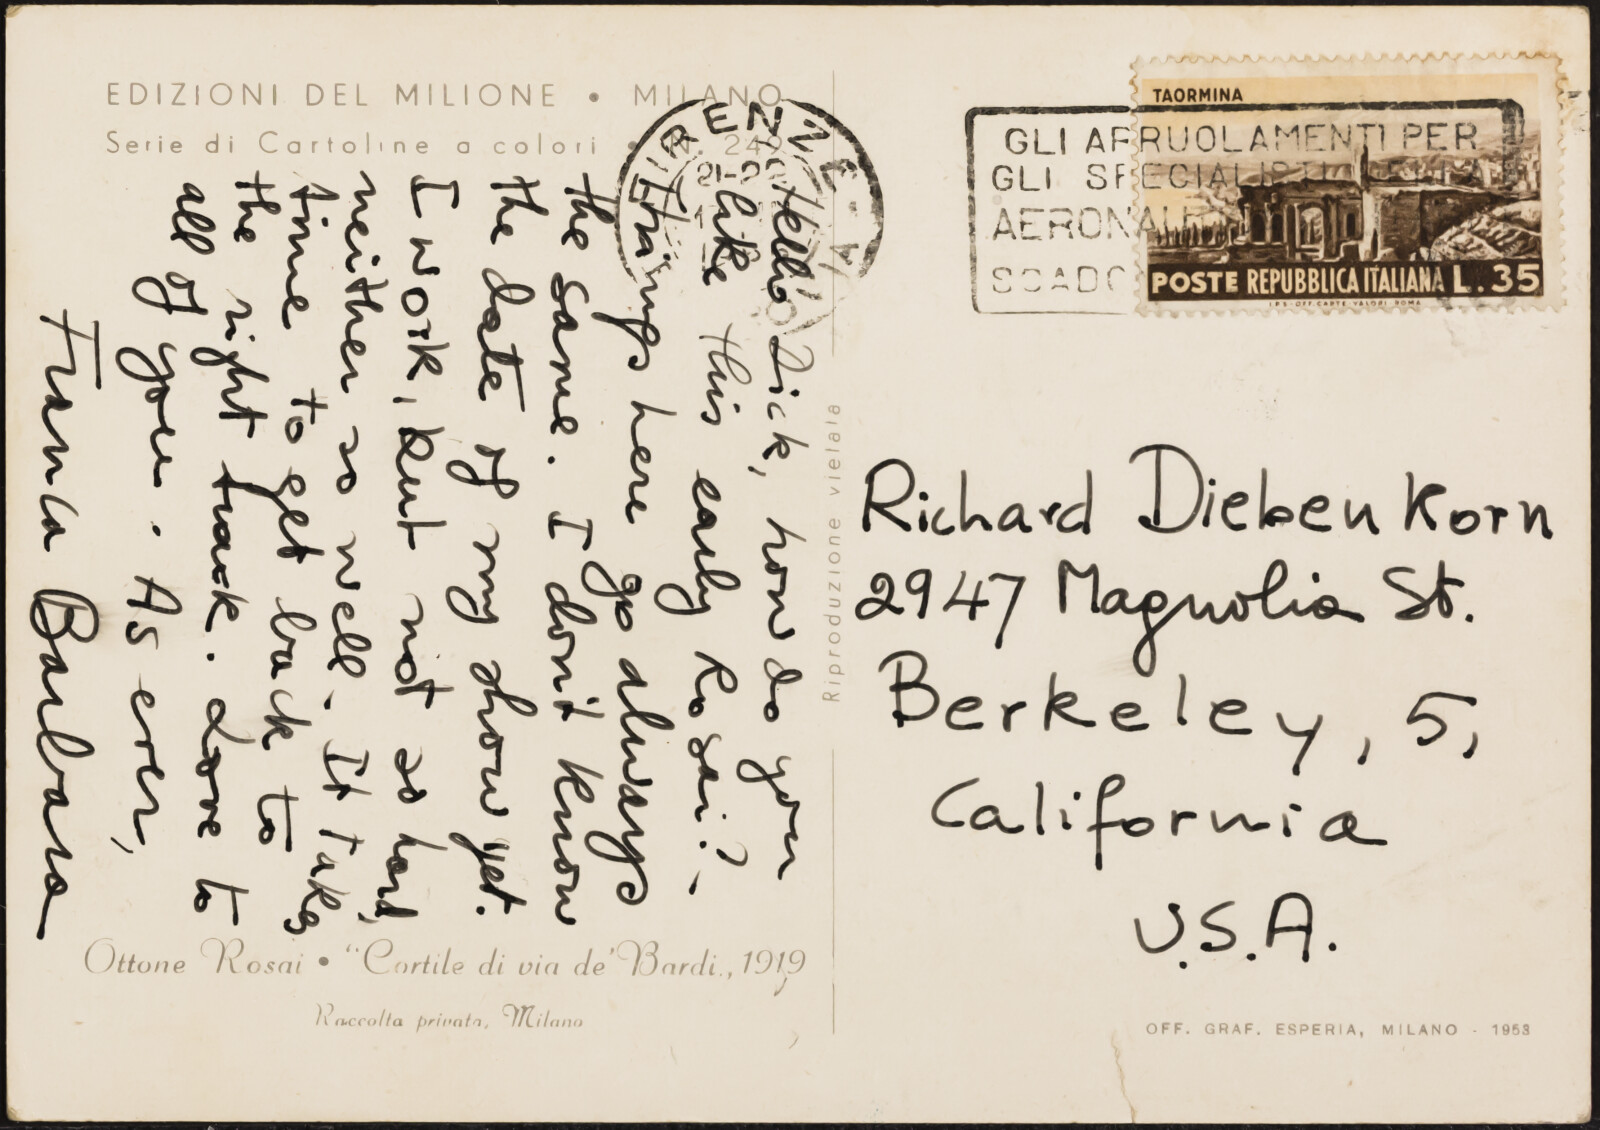 EDIZIONI DEL MILIONE • MILANO
Serie di Cartoline a colori • N. 242
Hello Dick, how do you
like this early Rosai?
Things here go always
the same. I don't know
the date of my show yet.
I work, but not so hard,
neither so well. It takes
time to get back to
the right track. Love to
all of you. As ever,
Franca Barbara
Ottone Rosai • "Cortile di via de' Bardi,, 1919
Raccolta privata, Milano
Riproduzione vietata
FIRENZE
21-22
GLI ARRUOLAMENTI PER
GLI SPECIALISTI DELLA
AERONAU
SCADO
TAORMINA
POSTE REPUBBLICA ITALIANA L. 35
I.P.S-OFF. CARTE-VALORI ROMA
Richard Diebenkorn
2947 Magnolia St.
Berkeley, 5,
California
U.S.A.
OFF. GRAF. ESPERIA, MILANO - 1953